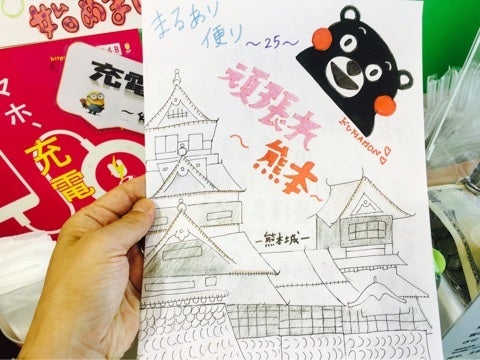 まるあり
便り
〜25〜
KUMAMON♡
頑張れ
〜熊本〜
ー熊本城ー
マホ、
充電
充電